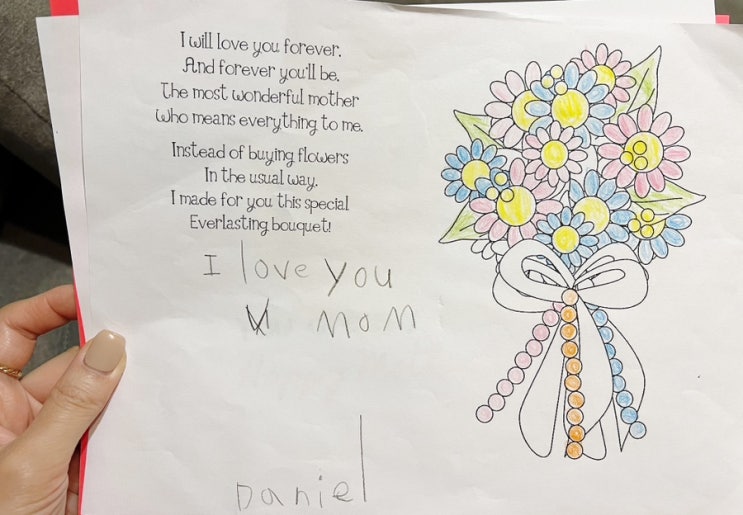 I will love you forever.
And forever you'll be,
The most wonderful mother
Who means everything to me.
Instead of buying flowers
In the usual way.
I made for you this special
Everlasting bouquet!
I love you
MOM
Daniel